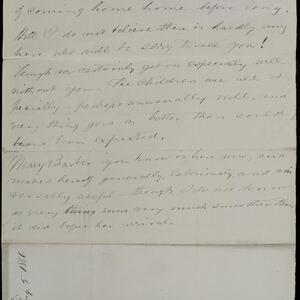 of coming home home before long.
But I do not believe there is hardly any
here who will be sorry to see you!
though we certainly get on especially well
without you. The children are all so
specially – perhaps unusually well, and
every thing goes on better than could
have been expected.
Mary Barber you know is here now, and
makes herself generally, laboriously and uni
versally useful – though I do not know
as every thing runs very much smoother than
it did before her arrival.
5 1861